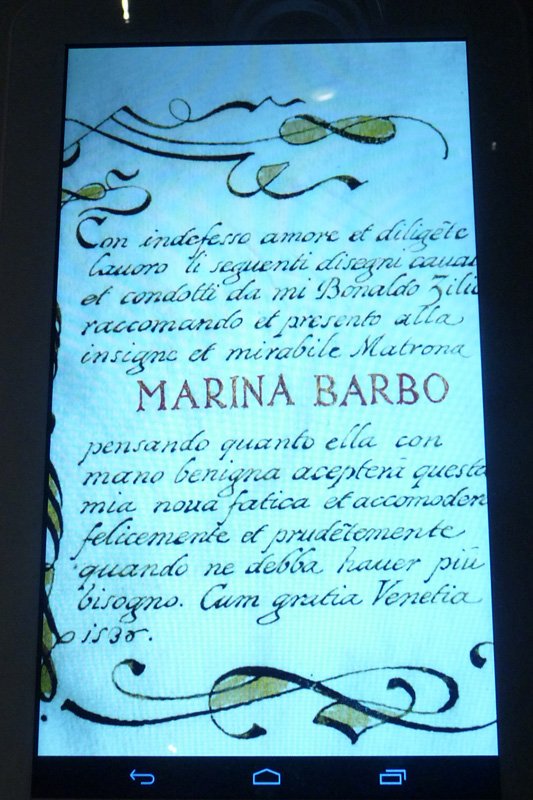 Con indefesso amore et diligẽte
lauoro li seguenti disegni cauat
et condotti da mi Bonaldo Zili
raccomando et presento alla
insigne et mirabile Matrona
MARINA BARBO
pensando quanto ella con
mano benigna accepterà questa
mia noua fatica et accomoder
felicemente et prudẽtemente
quando ne debba hauer più
bisogno. Cum gratia Venetia